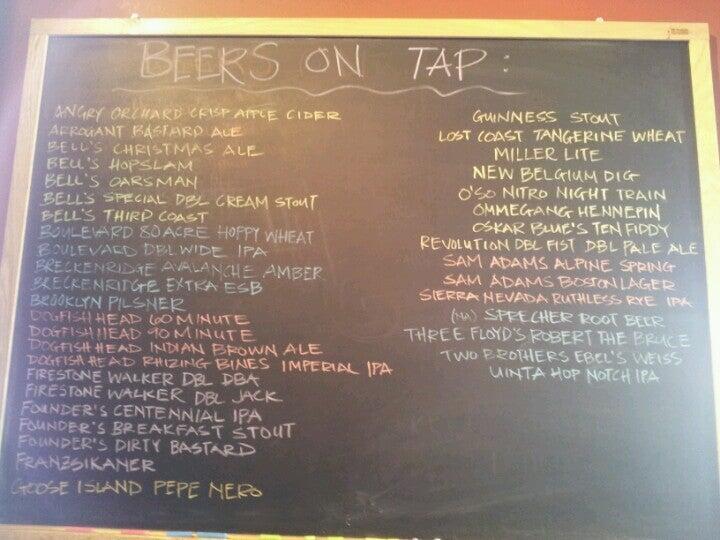 BEERS ON TAP:
ANGRY ORCHARD CRISP APPLE CIDER
ARROGANT BASTARD ALE
BELL'S CHRISTMAS ALE
BELL'S HOPSLAM
BELL'S OARSMAN
BELL'S SPECIAL DBL CREAM STOUT
BELL'S THIRD COAST
BOULEVARD 80 ACRE HOPPY WHEAT
BOULEVARD DBL WIDE IPA
BRECKENRIDGE AVALANCHE AMBER
BRECKENRIDGE EXTRA ESB
BROOKLYN PILSNER
DOGFISH HEAD 60 MINUTE
DOGFISH HEAD 90 MINUTE
DOGFISH HEAD INDIAN BROWN ALE
DOGFISH HEAD RHIZING BINES IMPERIAL IPA
FIRESTONE WALKER DBL DBA
FIRESTONE WALKER DBL JACK
FOUNDER'S CENTENNIAL IPA
FOUNDER'S BREAKFAST STOUT
FOUNDER'S DIRTY BASTARD
FRANZSIKANER
GOOSE ISLAND PEPE NERO
GUINNESS STOUT
LOST COAST TANGERINE WHEAT
MILLER LITE
NEW BELGIUM DIG
O'SO NITRO NIGHT TRAIN
OMMEGANG HENNEPIN
OSKAR BLUE'S TEN FIDDY
REVOLUTION DBL FIST DBL PALE ALE
SAM ADAMS ALPINE SPRING
SAM ADAMS BOSTON LAGER
SIERRA NEVADA RUTHLESS RYE IPA
(NA) SPRECHER ROOT BEER
THREE FLOYD'S ROBERT THE BRUCE
TWO BROTHERS EBEL'S WEISS
UINTA HOP NOTCH IPA